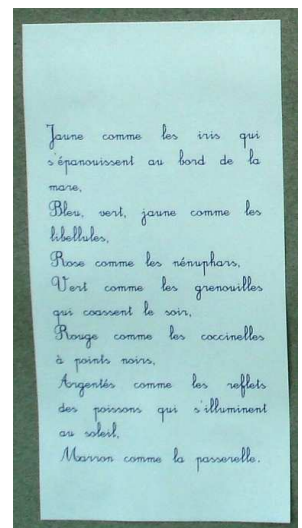 Jaune comme les iris qui
s'épanouissent au bord de la
mare,
Bleu, vert, jaune comme les
libellules,
Rose comme les nénuphars,
Vert comme les grenouilles
qui coassent le soir,
Rouge comme les coccinelles
à points noirs,
Argentés comme les reflets
des poissons qui s'illuminent
au soleil,
Marron comme la passerelle.